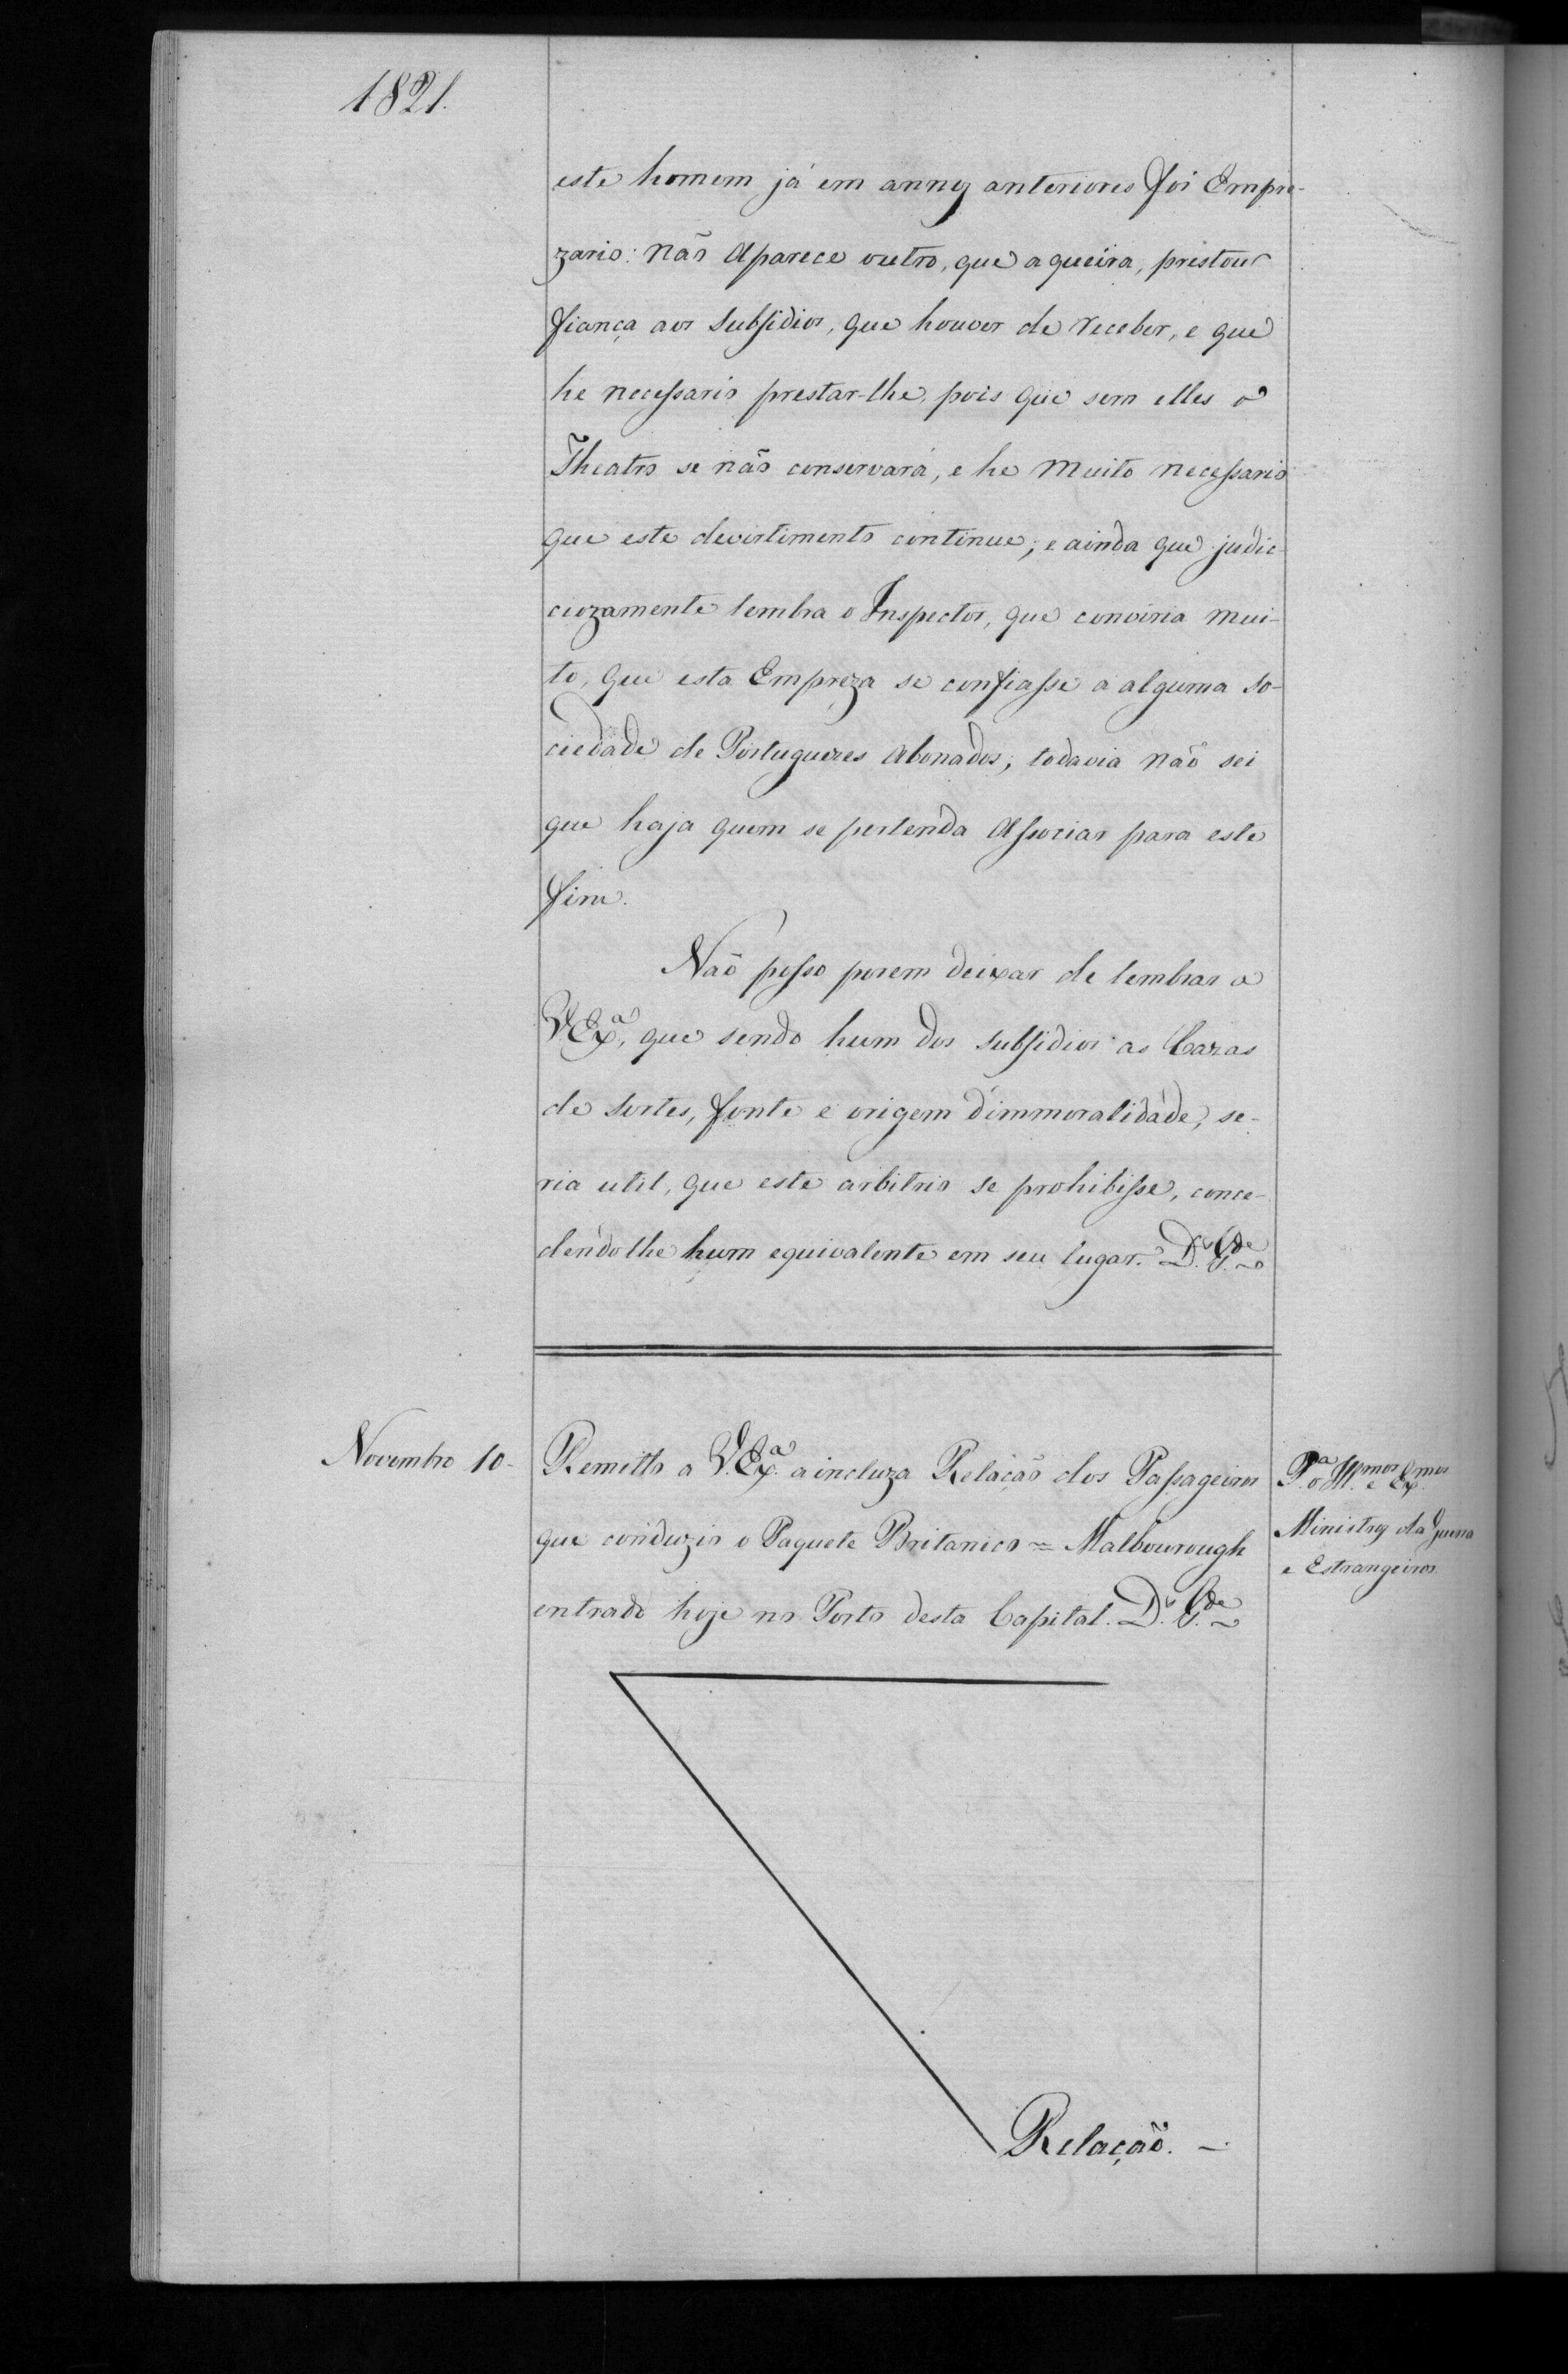 1821.
este homem já em annos anteriores foi Empre-
zario: não aparece outro, que a queira, prestou
fiança aos subsidios, que houver de receber, e que
he necessario prestar-lhe, pois que sem elles o
Theatro se não conservará, e he muito necessario
que este devirtimento continue; e ainda que judic-
ciozamente lembra o Inspector, que conviria mui-
to, que esta Empreza se confiasse a alguma so-
ciedade de Portuguezes abonados; todavia não sei
que haja quem se pertenda associar para este
fim.
Não posso porem deixar de lembrar a
V.Exª, que sendo hum dos subsidios as Cazas
de sortes, fonte e origem d'immoralidade, se-
ria util, que este arbitrio se prohibisse, conce-
dendo lhe hum equivalente em seu lugar. D.s G.de
Novembro 10-
Remetto a V.Exª a incluza Relação dos Passageiros
que conduzio o Paquete Britanico = Malbourough
entrado hoje no Porto desta Capital. D.s G.de
P.ª o Ill.mos e Ex.mos
Ministros da Guerra
e Estrangeiros.
Relação. -